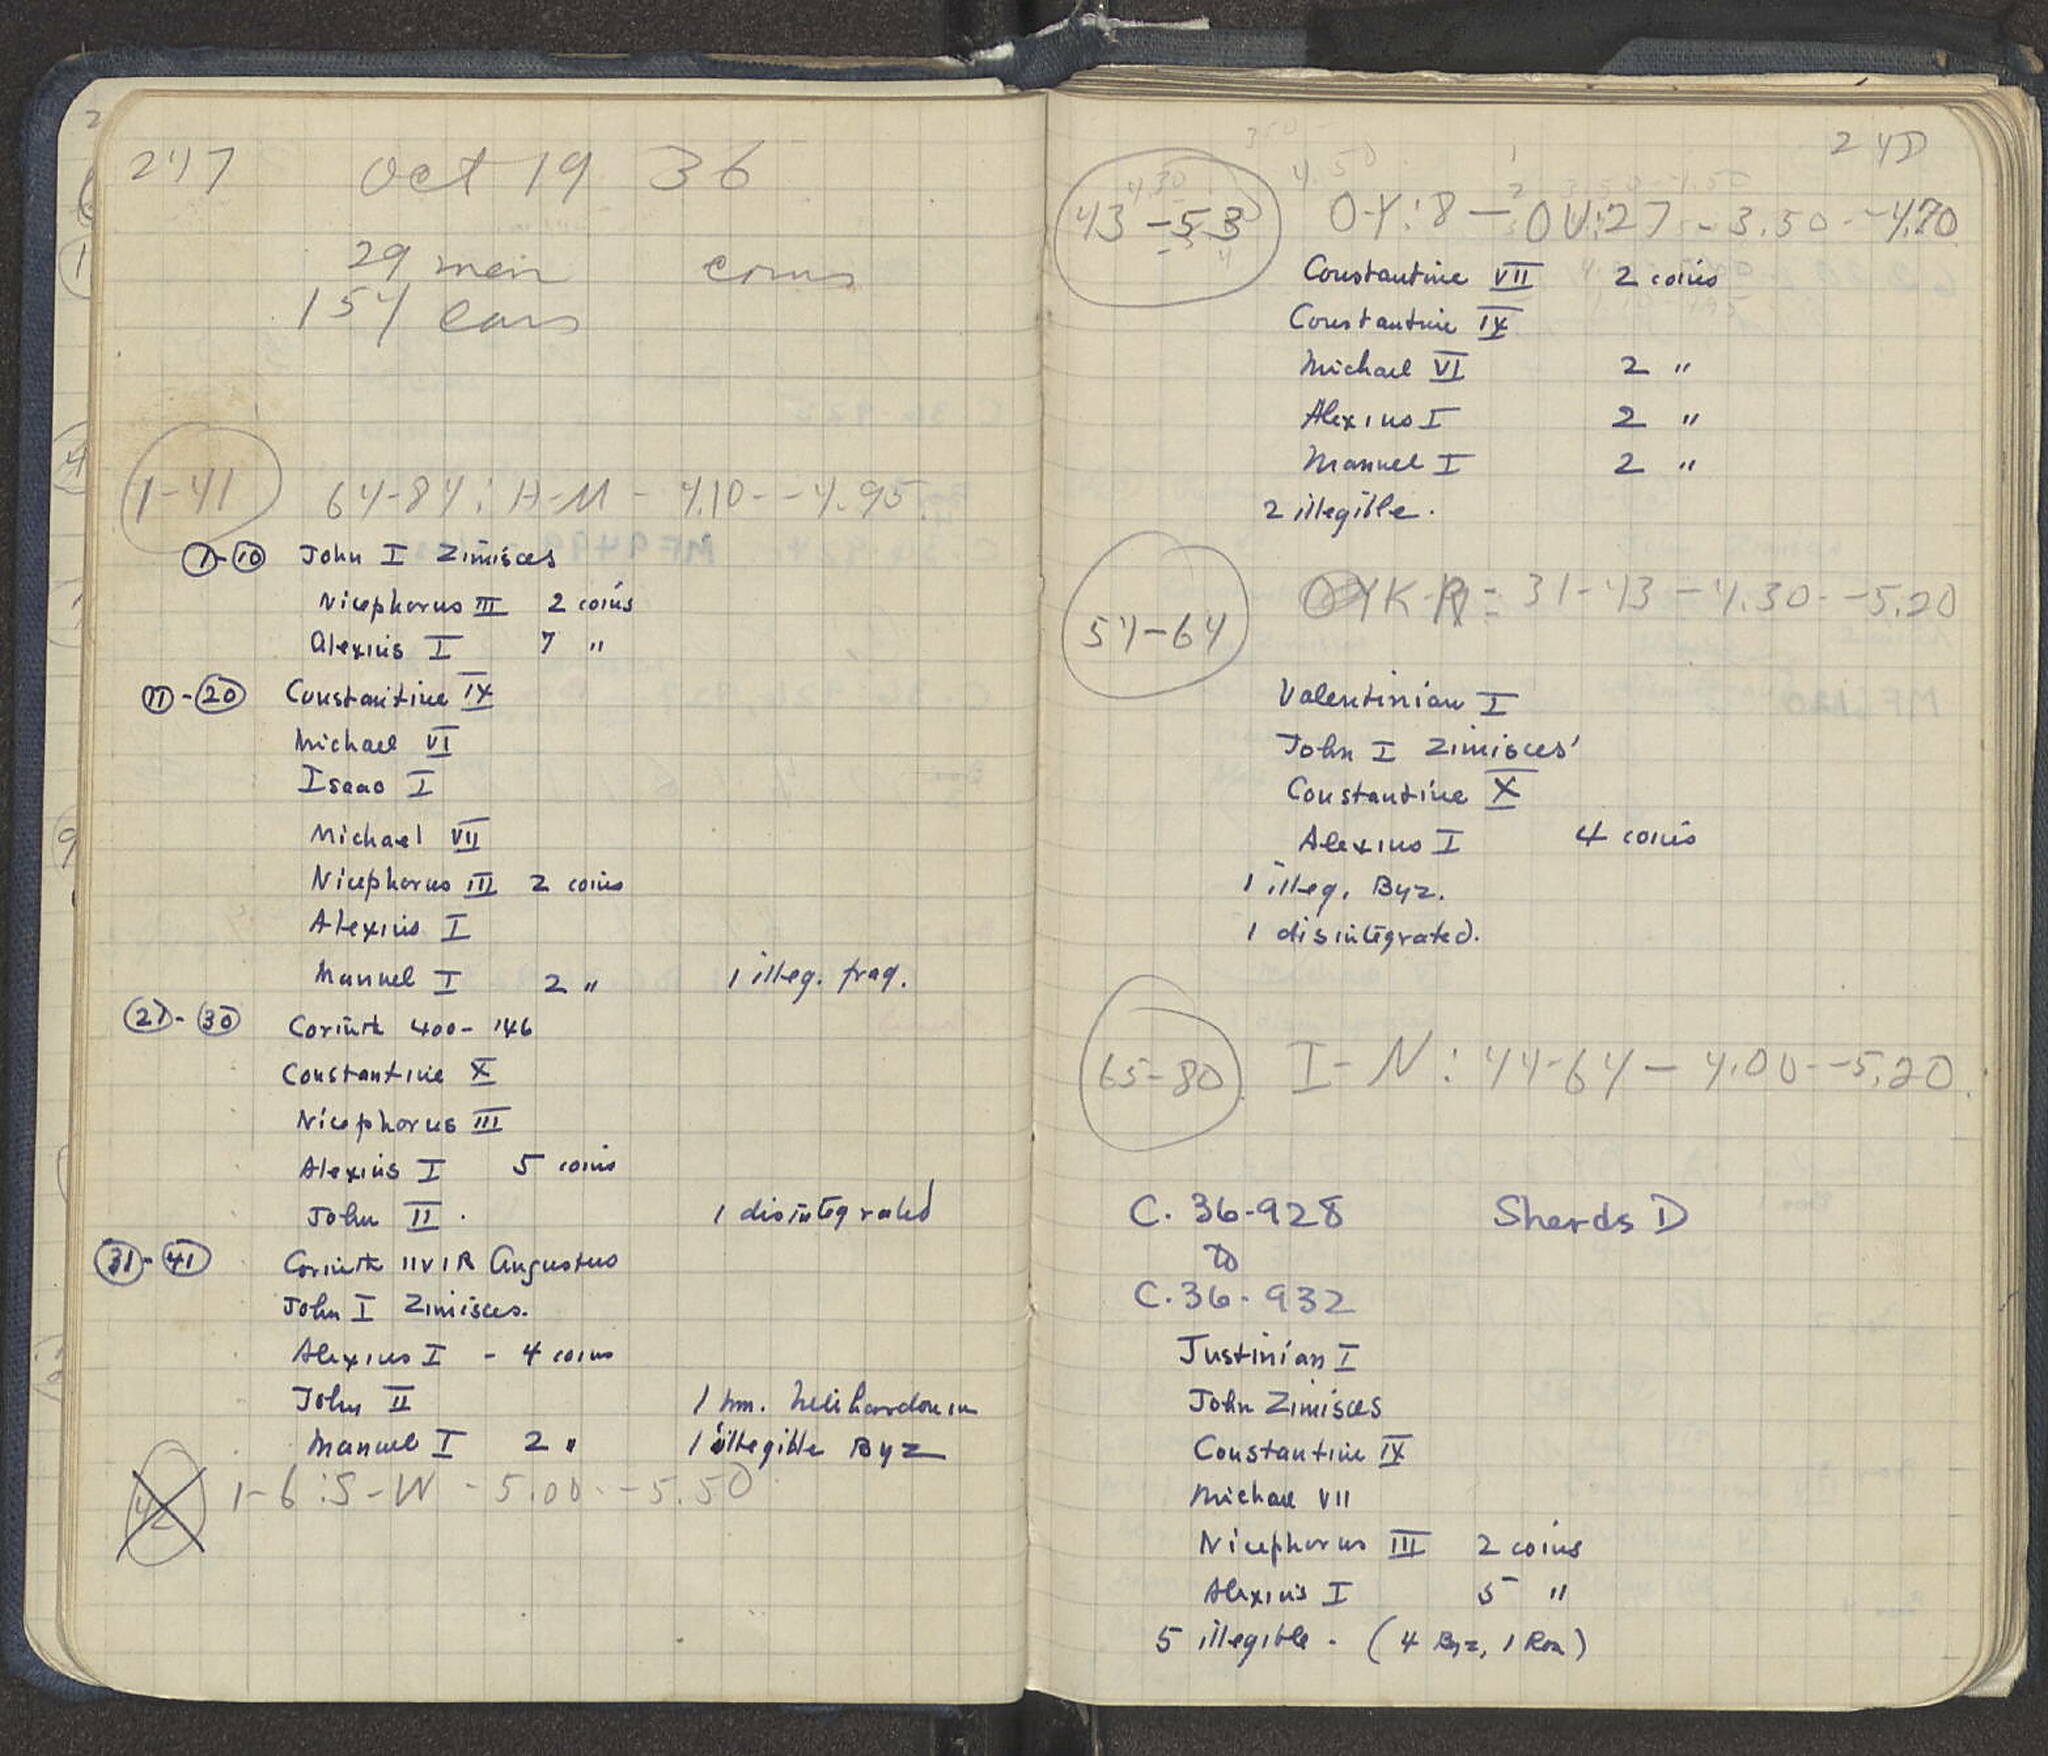 247 Oct 19 36
29 men coins
154 cars
1-41 64-84: H-M - 4.10--4.95
1-10 John I Zimisces
Nicephorus III 2 coins
Alexius I 7 "
11-20 Constantine IX
Michael VI
Isaac I
Michael VII
Nicephorus III 2 coins
Alexius I
Manuel I 2 " 1 illeg. frag.
21-30 Corinth 400-146
Constantine X
Nicephorus III
Alexius I 5 coins
John II. 1 disintegrated
31-41 Corinth IIVIR Augustus
John I Zimisces.
Alexius I - 4 coins
John II 1 hm.
Manuel I 2 " 1 illegible Byz
42 1-6:S-W - 5.00--5.50
43-53 3.50--4.70
Constantine VII 2 coins
Constantine IX
Michael VI 2 "
Alexius I 2 "
Manuel I 2 "
2 illegible.
54-64 K-R = 31-43 - 4.30--5.20
Valentinian I
John I Zimisces
Constantine X
Alexius I 4 coins
1 illeg. Byz.
1 disintegrated.
65-80 I-N: 44-64 - 4.00--5.20
C. 36-928 Sherds D
to
C. 36-932
Justinian I
John Zimisces
Constantine IX
Michael VII
Nicephorus III 2 coins
Alexius I 5 "
5 illegible. (4 Byz, 1 Rom)